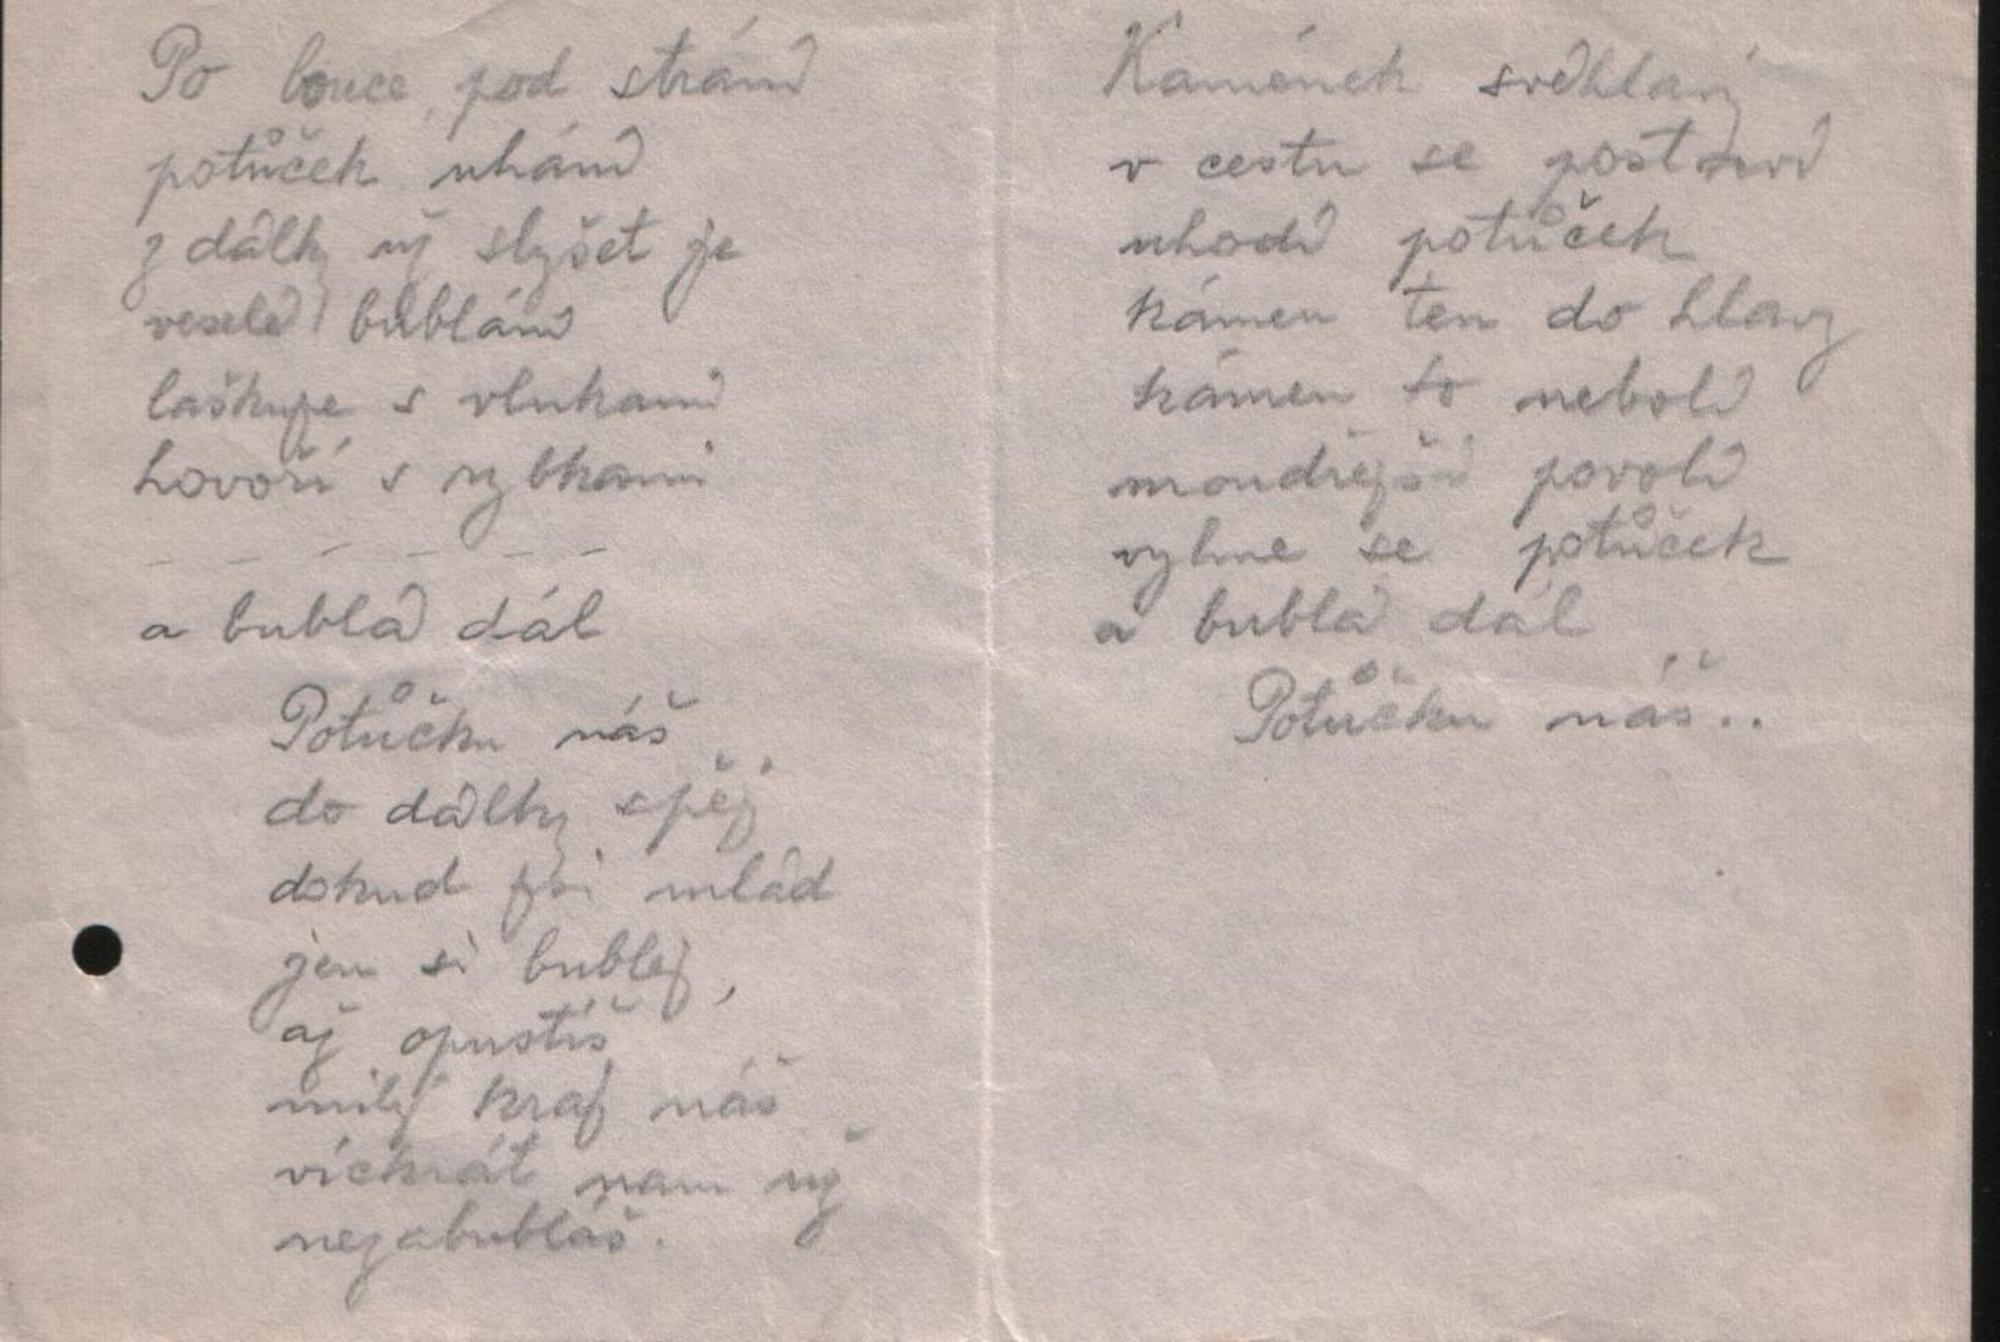 Po louce, pod strání
potůček uhání
z dálky už slyšet je
veselé bublání
laškuje s vlnkami
hovoří s rybkami
– – – – – –
a bublá dál
Potůčku náš
do dálky spěj,
dokud jsi mlád
jen si bublej,
až opustíš
milý kraj náš
víckrát nam už
nezabubláš.
Kamének svéhlavý
v cestu se postaví
uhodí potůček
kámen ten do hlavy
kámen to nebolí
moudřejší povolí
vyhne se potůček
a bublá dál
Potůčku náš..